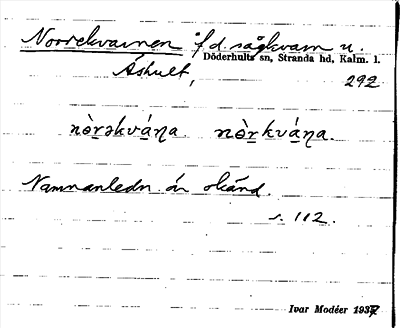 Norrekvarnen f.d. sågkvarn u.
Döderhults sn, Stranda hd, Kalm. l.
Åshult,
292
nòrəkváɳa nòrkváɳa.
Namnanledn. är okänd.
s. 112.
Ivar Modéer 1937